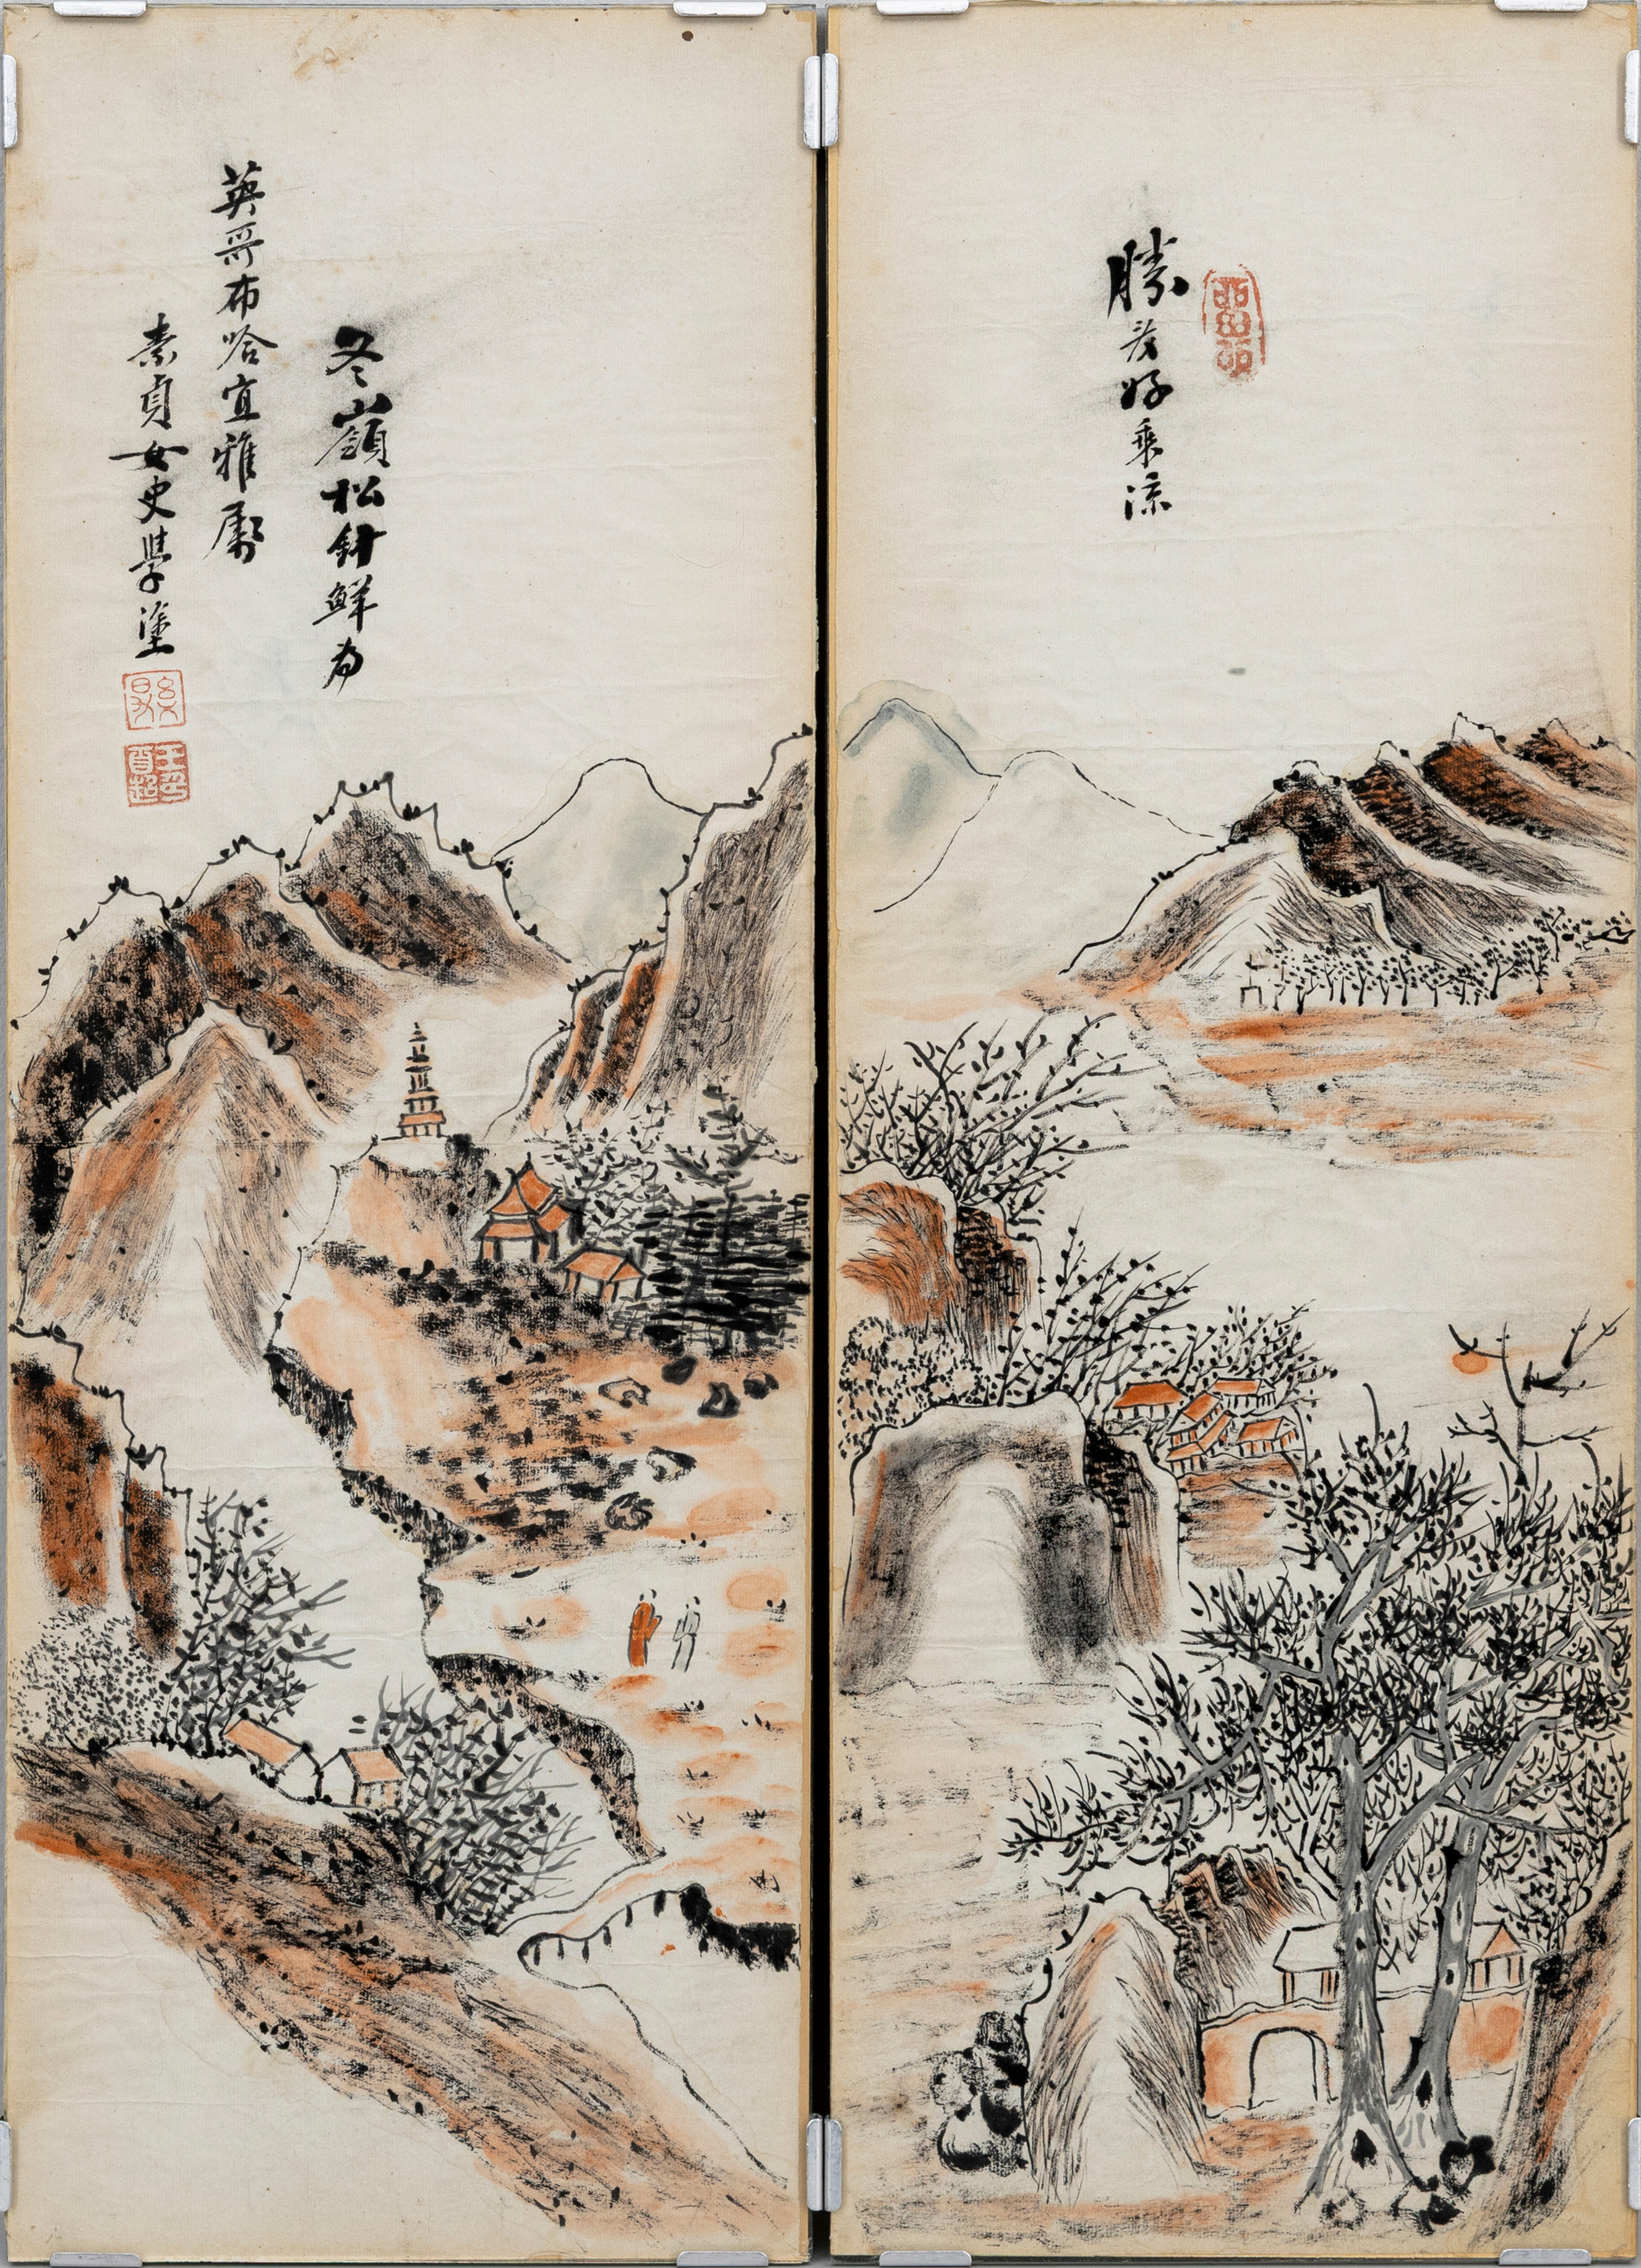 勝茂好乘涼
冬嶺松針鮮為
英哥布哈宜雅屬
素貞女史學塗